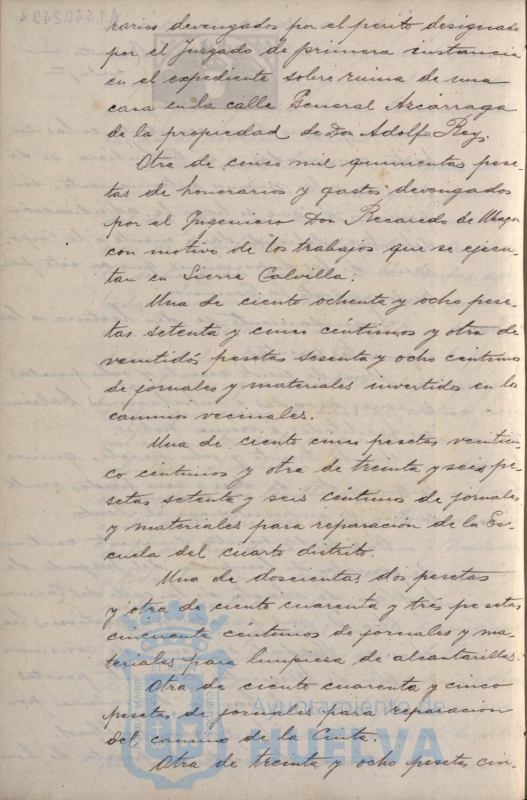 A1.440.249
rarios devengados por el perito designado
por el Juzgado de primera instancia
en el expediente sobre ruina de una
casa en la calle General Azcárraga
de la propiedad de Don Adolfo Rey.
Otra de cinco mil quinientas pese-
tas de honorarios y gastos devengados
por el Ingeniero Don Recaredo de Uhagon
con motivo de los trabajos que se ejecu-
tan en Sierra Calvilla.
Una de ciento ochenta y ocho pese-
tas setenta y cinco céntimos y otra de
veintidós pesetas sesenta y ocho céntimos
de jornales y materiales invertidos en los
caminos vecinales.
Una de ciento cinco pesetas veinticin-
co céntimos y otra de treinta y seis pe-
setas setenta y seis céntimos de jornales
y materiales para reparación de la Es-
cuela del cuarto distrito.
Una de doscientas dos pesetas
y otra de ciento cuarenta y tres pesetas
cincuenta céntimos de jornales y ma-
teriales para limpiesa de alcantarillas.
Otra de ciento cuarenta y cinco
pesetas de jornales para reparacion
del camino de la Cinta.
Otra de treinta y ocho pesetas cin-
Ayuntamiento de
HUELVA